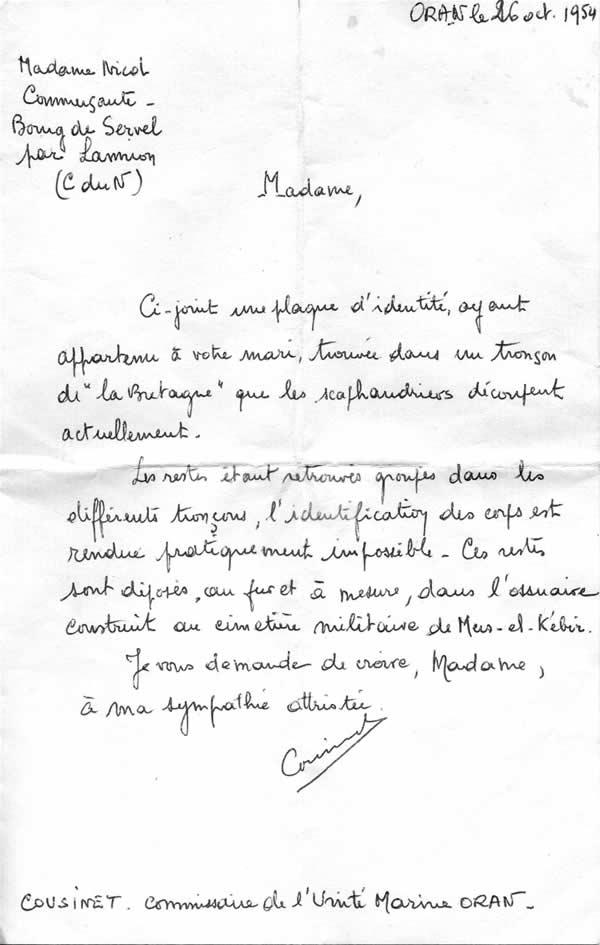 ORAN le 26 oct. 1954
Madame Nicol
Commerçante -
Bourg de Servel
par Lannion
(C du N)
Madame,
Ci-joint une plaque d'identité, ayant
appartenu à votre mari, trouvée dans un tronçon
du "la Bretagne" que les scaphandriers découpent
actuellement.
Les restes étant retrouvés groupés dans les
différents tronçons, l'identification des corps est
rendue pratiquement impossible - Ces restes
sont déposés, au fur et à mesure, dans l'ossuaire
construit au cimetière militaire de Mers-el-Kébir.
Je vous demande de croire, Madame,
à ma sympathie attristée.
Cousinet
COUSINET. Commissaire de l'Unité Marine ORAN -